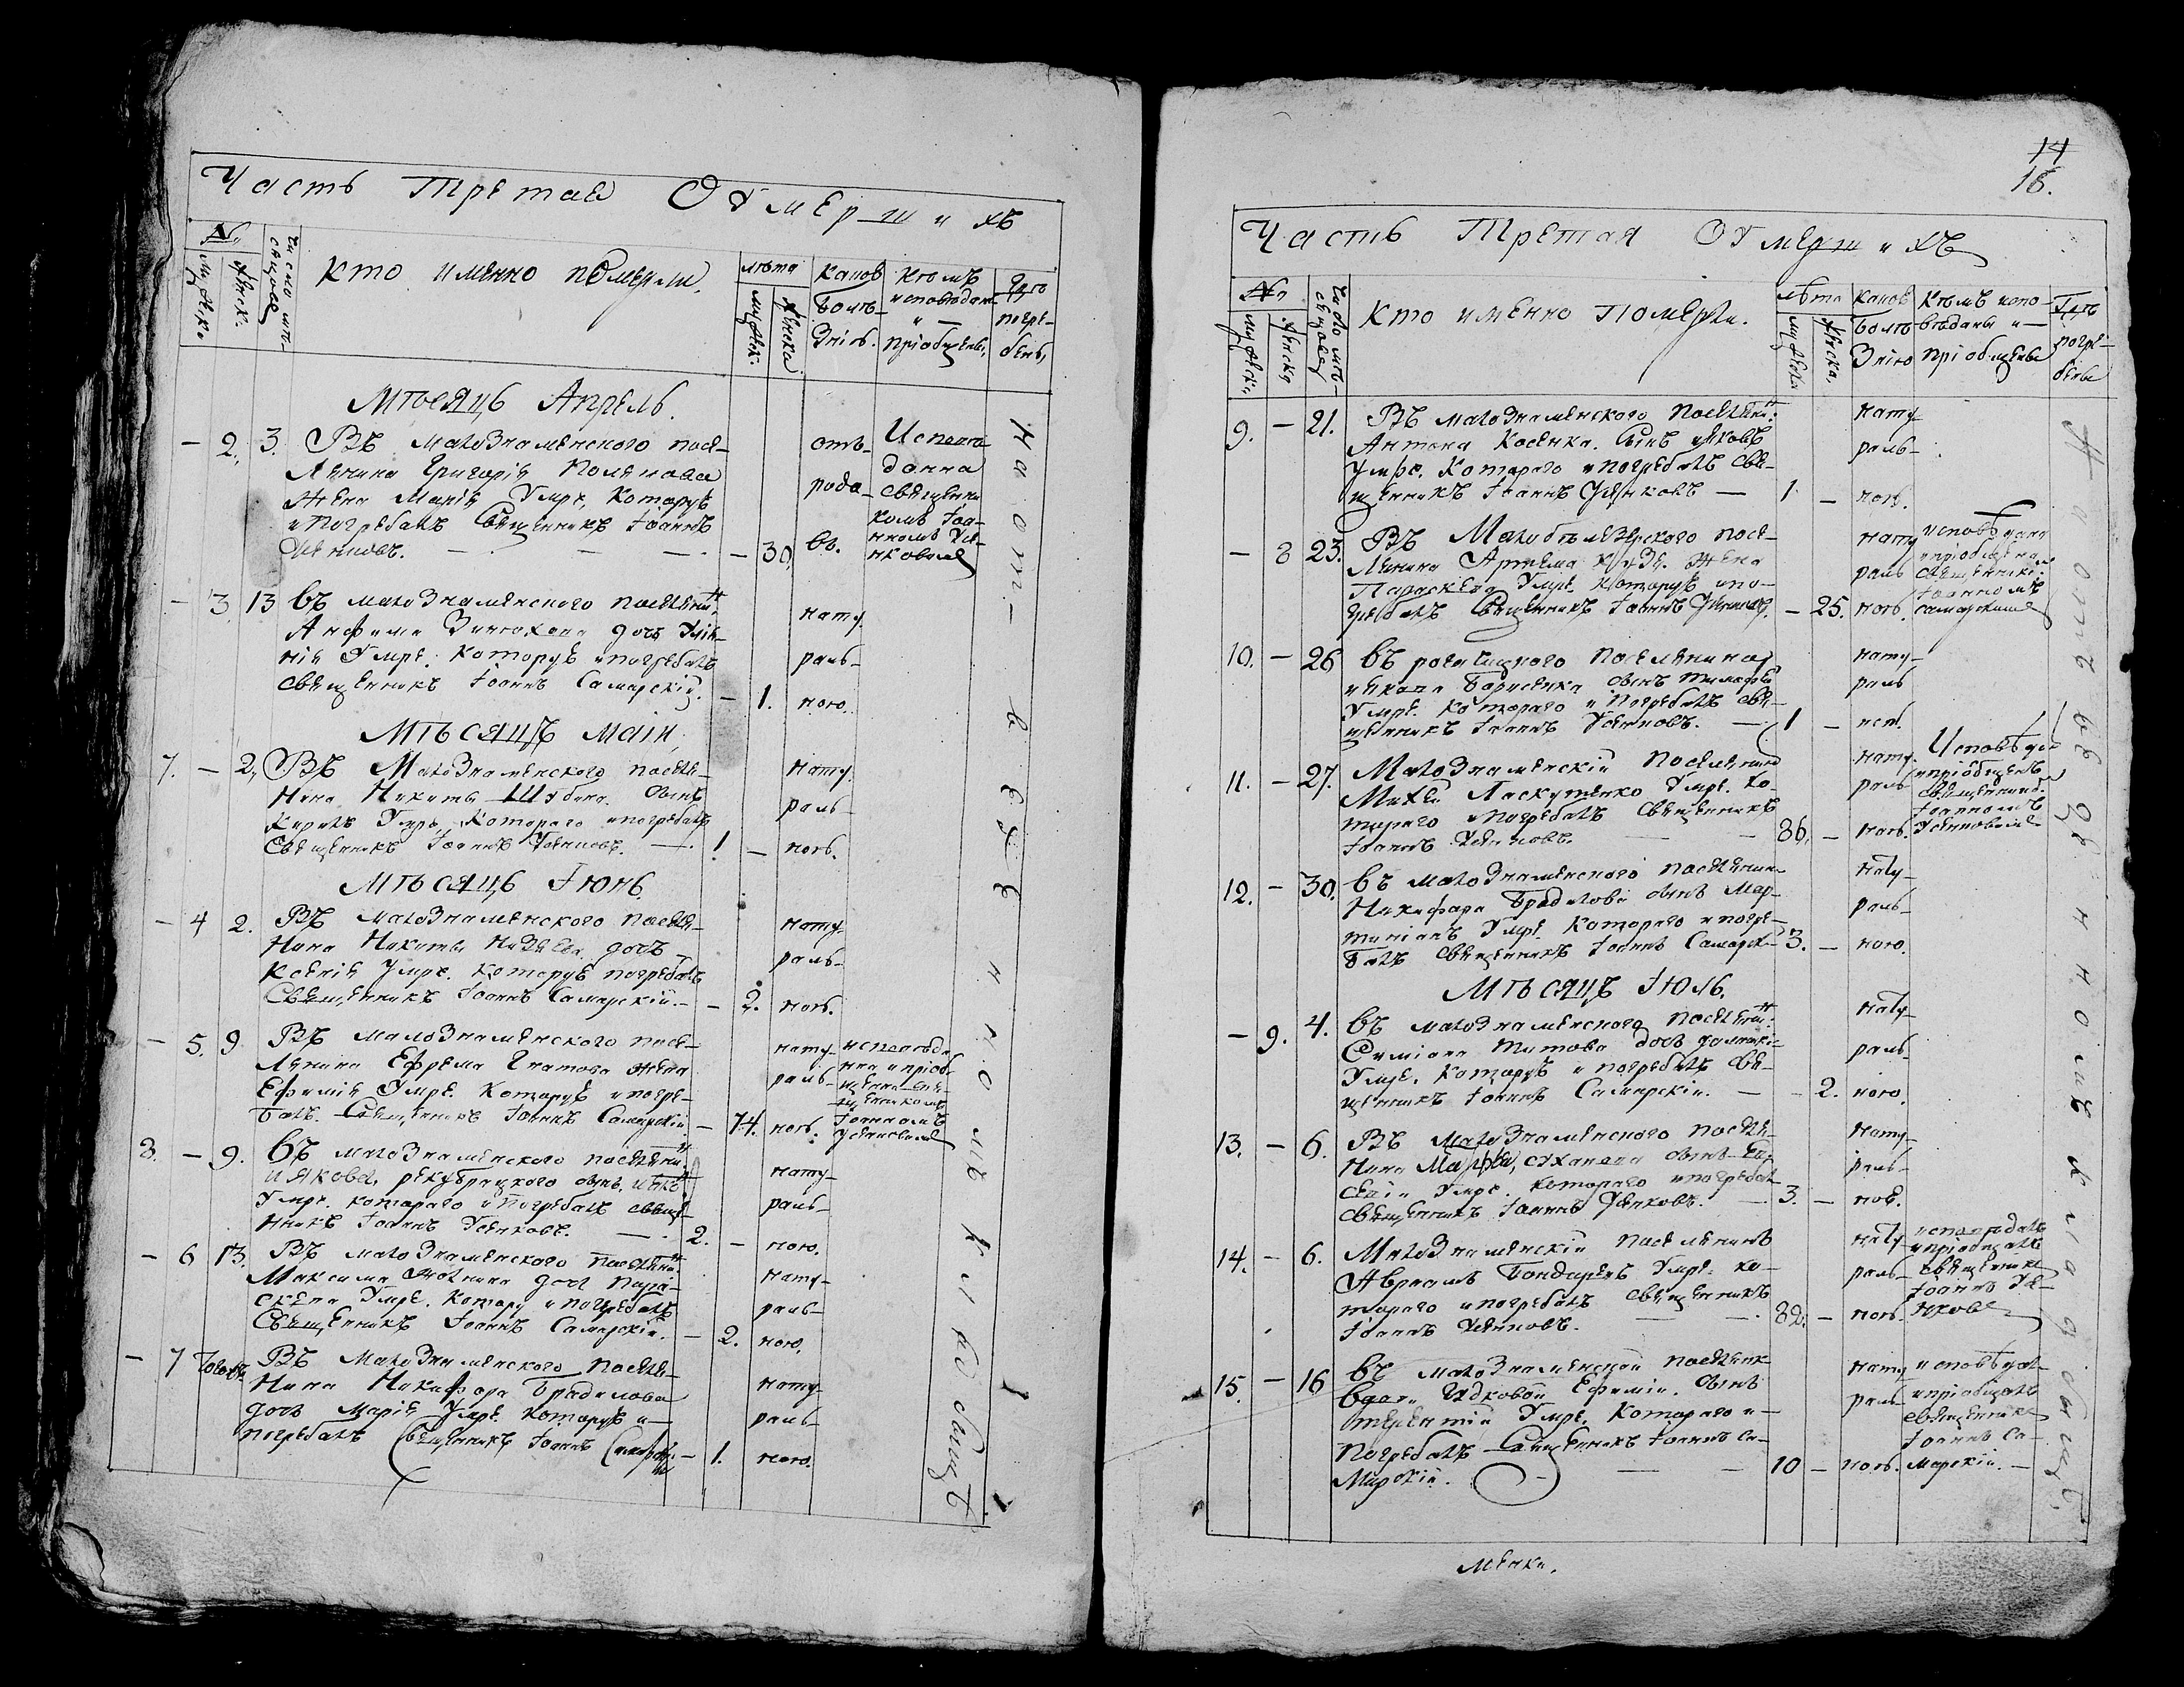 Часть Третая О Умершихъ
№
Мужеск:
Женск:
Число мѣсяцовъ
Кто именно померли.
лѣта
мужеск:
женска
Какою болѣзнію.
Кѣмъ исповѣданы и пріобщены,
Гдѣ погребены,
Мѣсяць Апрель.
– 2. 3. Въ малознаменского посе-
лянина Григорія
Жена Марія Умре, Которую
и Погребалъ Священникъ Іоаннъ
Усенковъ. – 30.
отъ
родо-
въ.
Исповѣ-
данна
Священни-
комъ Іоа-
нномъ Усе-
нковымъ
– 3. 13 Въ малознаменского поселяни:
дочь
Умре. Которую и погребалъ
священникъ Іоаннъ Самарскій. – 1.
нату-
раль-
ною.
Мѣсяцъ Маій
7. – 2. Въ Малознаменского поселя-
нина Никиты Шубина. Сынъ
Кирилъ Умре, Которого и погребалъ
Священникъ Іоаннъ Усенковъ. – 1. –
нату
раль
ною.
Мѣсяць Іюнь.
– 4 2. Въ малознаменского поселя-
нина Никиты дочь
Ксенія Умре. Которую погребалъ
Священникъ Іоаннъ Самарскій. – 2.
нату-
раль-
ною.
– 5. 9 Въ малознаменского посе-
лянина Ефрема Гнатова жена
Ефимія Умре. Которую и погре-
балъ Священникъ Іоаннъ Самарскій – 74.
нату-
раль-
ною.
исповѣда
нна и пріоб-
щена свя-
щенникомъ
Іоанномъ
Усенковымъ
8. – 9. Въ малознаменского поселяни:
Иякова, рекубрацкого сынъ,
Умре. которого и погребалъ свяще-
нникъ Іоаннъ Усенковъ. – 2. –
нату-
раль-
ною.
– 6 13. Въ малознаменского поселяни:
Максима дочь Пара-
скева Умре. Котору и погребалъ
Священникъ Іоаннъ Самарскій. – 2.
нату-
раль-
ною.
– 7 Въ Малознаменского поселя-
нина Никифора Брадилова
дочь Марія Умре. Которую и
погребалъ Священникъ Іоаннъ Самарскій – 1.
нату-
раль-
ною.
На отведенномъ кладбищѣ
14
15.
Часть Третая О Умершихъ
№
Мужеск:
Женска
Число мѣсяцовъ
Кто именно Померли.
лѣта
мужеск:
женска,
Какою болѣзнію
Кѣмъ исповѣданы и пріобщены
Гдѣ погребены
9. – 21. Въ малознаменского поселяни:
Антона Косенка. Сынъ Яковъ
Умре. Которого и погребалъ Свя-
щенникъ Іоаннъ Усенковъ – 1. –
нату
раль-
ною.
– 8 23. Въ Малобѣлозерского посе-
лянина Артема Жена
Параскева Умре. Которую и по-
гребалъ Священникъ Іоаннъ Усенковъ. – 25.
нату
раль
ною.
исповѣдана
и пріобщена
священник:
Іоанномъ
Самарскимъ
10. – 26 Въ поселянина
Борисенка сынъ Тимофѣй
Умре. Которого и Погребалъ Свя-
щенникъ Іоаннъ Усенковъ. – 1 –
нату-
раль
ною.
11. – 27. Малознаменскій Поселянинъ
Михей Ласкутенко Умре. Ко-
торого и погребалъ Священникъ
Іоаннъ Усенковъ. 86. –
нату.
раль
ною.
Исповѣдан
и пріобщенъ
Священник.
Іоанномъ
Усенковымъ
12. – 30. Въ малознаменского поселянина
Никифора Брадилова сынъ Мар-
тиніанъ Умре. Которого и погре-
балъ Священникъ Іоаннъ Самарск. 3. –
нату-
раль-
ною.
Мѣсяцъ Іюль.
– 9. 4. Въ малознаменского поселяни:
Симіона Титова дочь
Умре, Которую и погребалъ Свя-
щенникъ Іоаннъ Самарскій. – 2.
нату-
раль-
ною.
13. – 6. Въ Малознаменского поселя-
нина сынъ
Умре. которого и погребалъ
Священникъ Іоаннъ Усенковъ. 3. –
нату-
раль-
ною.
14. – 6. Малознаменскій поселянинъ
Авраамъ Бондаревъ Умре. ко-
торого и погребалъ Священникъ
Іоаннъ Усенковъ. 82. –
нату
раль-
ною.
исповѣдалъ
и пріобщалъ
Священникъ
Іоаннъ Усе-
нковъ
15 – 16 Въ малознаменской поселянк.
вдови Ефиміи. Сынъ
Терентій Умре. Которого и
Погребалъ Священникъ Іоаннъ Са-
марскій. 10 –
нату
раль
ною.
исповѣдал
и пріобщалъ
священникъ
Іоаннъ Са-
марскій.
На отведенномъ кладбищѣ.